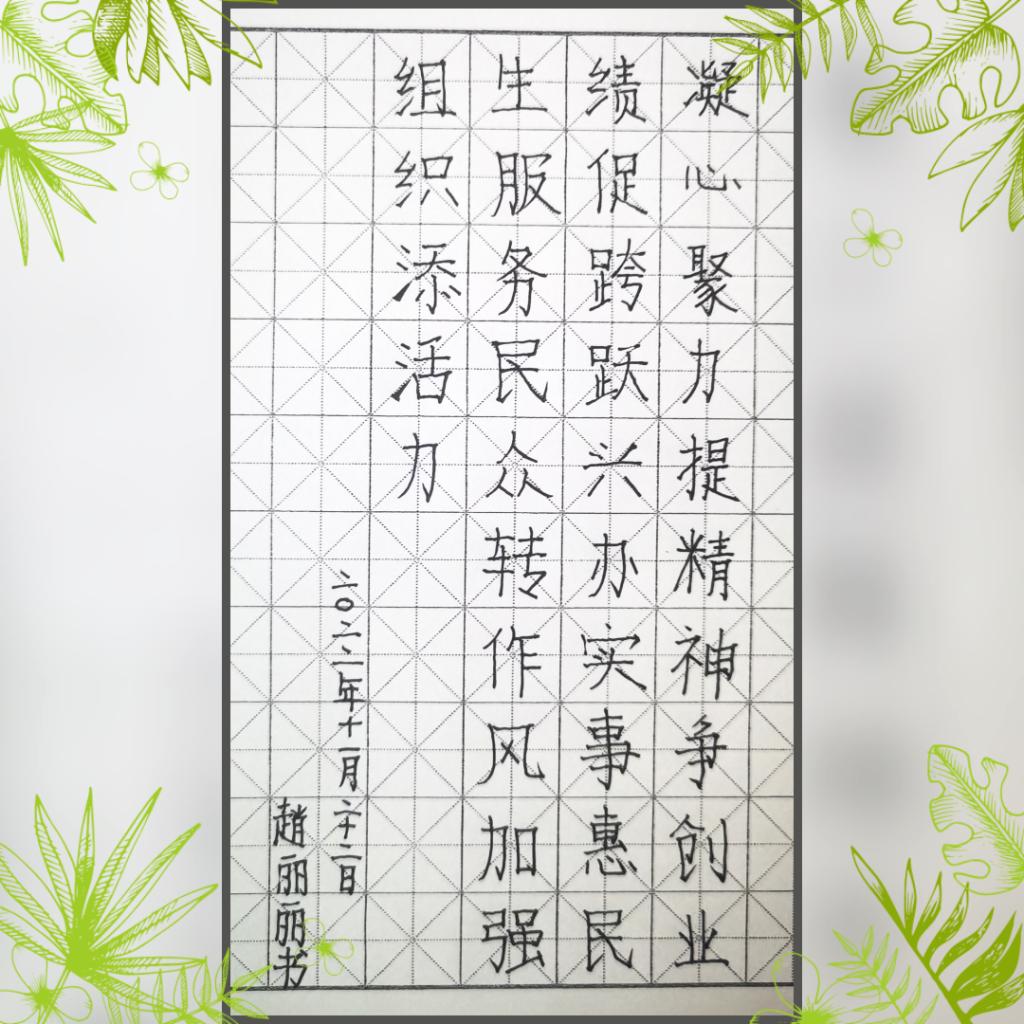 凝心聚力提精神争创业
绩促跨跃兴办实事惠民
生服务民众转作风加强
组织添活力
二〇二二年十一月二十二日
趙丽丽书